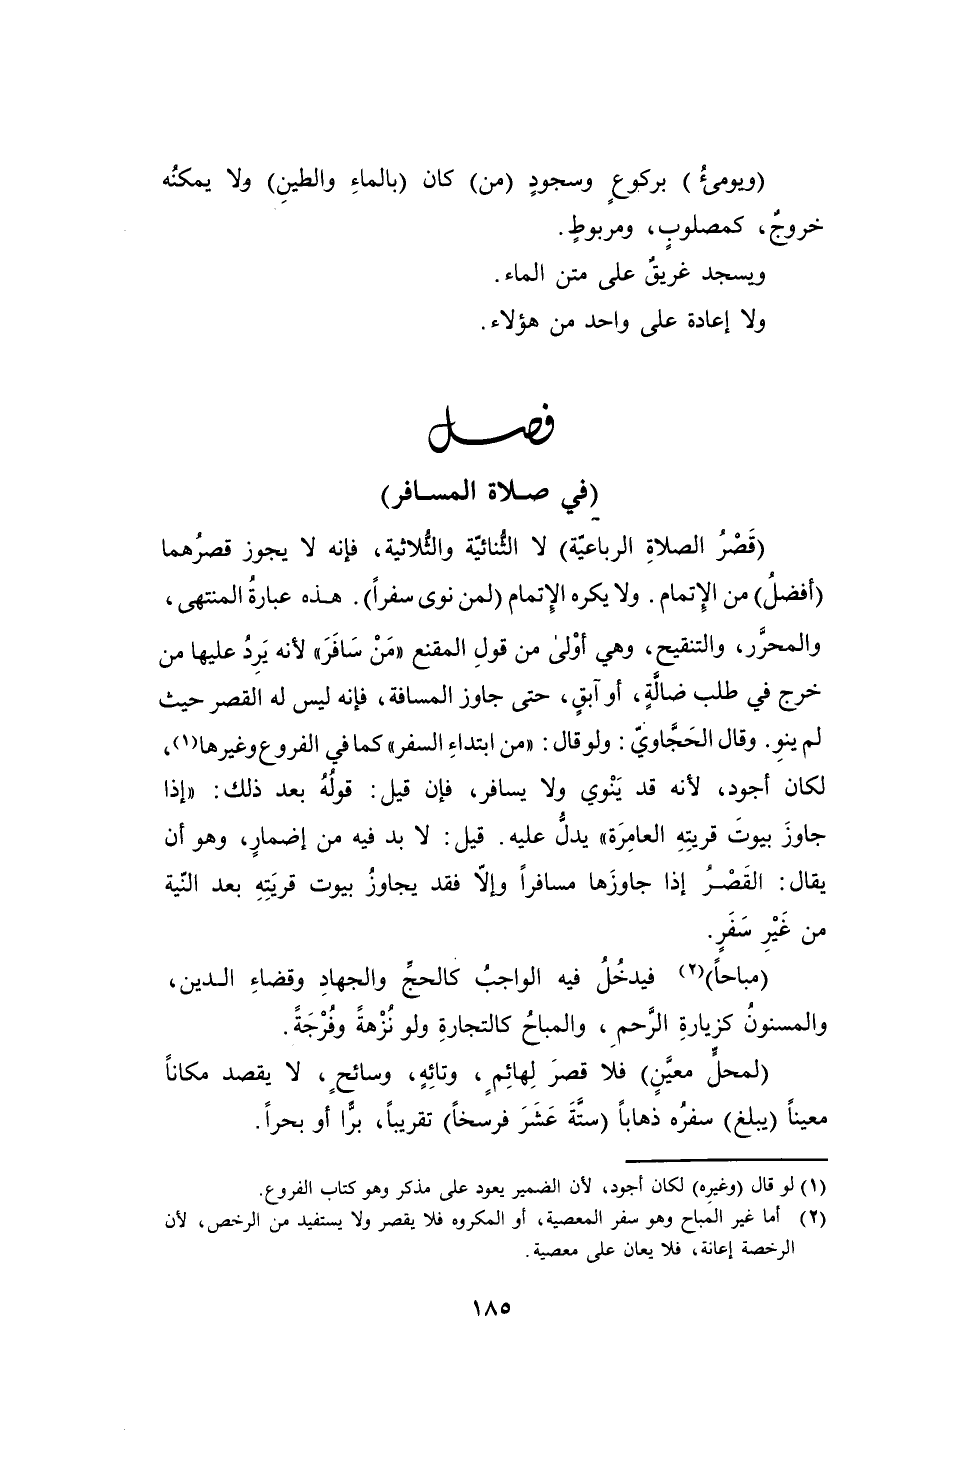 (ويومئُ ) بركوعٍ وسجودٍ (من) كان (بالماءِ والطينِ) ولا يمكنُه
خروجٌ، كمصلوبٍ، ومربوطٍ.
ويسجد غريقٌ على متن الماء.
ولا إعادة على واحد من هؤلاء.
فصل
(في صلاة المسافر)
(قَصْرُ الصلاةِ الرباعيّة) لا الثُّنائيّة والثُّلاثية، فإنه لا يجوز قصرُهما
(أفضلُ) من الإتمام. ولا يكره الإتمام (لمن نوى سفراً). هذه عبارةُ المنتهى،
والمحرَّر، والتنقيح، وهي أوْلىٰ من قولِ المقنع «مَنْ سَافَرَ» لأنه يَرِدُ عليها من
خرج في طلب ضالَّةٍ، أو آبقٍ، حتى جاوز المسافة، فإنه ليس له القصر حيث
لم ينوِ. وقال الحَجَّاويّ: ولو قال: «من ابتداءِ السفر» كما في الفروع وغيرها(١)،
لكان أجود، لأنه قد يَنْوي ولا يسافر، فإن قيل: قولُهُ بعد ذلك: «إذا
جاوزَ بيوتَ قريتِهِ العامِرَة» يدلُّ عليه. قيل: لا بد فيه من إضمارٍ، وهو أن
يقال: القَصْرُ إذا جاوزَها مسافراً وإلّا فقد يجاوزُ بيوت قريَتِهِ بعد النّية
من غَيْرِ سَفَرٍ.
(مباحاً)(٢) فيدخُلُ فيه الواجبُ كالحجِّ والجهادِ وقضاءِ الدين،
والمسنونُ كزيارةِ الرَّحمِ، والمباحُ كالتجارةِ ولو نُزْهةً وفُرْجَةً.
(لمحلٍّ معيَّنٍ) فلا قصرَ لِهائِمٍ، وتائِهٍ، وسائحٍ، لا يقصد مكاناً
معيناً (يبلغ) سفرُه ذهاباً (ستَّةَ عَشَرَ فرسخاً) تقريباً، برًّا أو بحراً.
(١) لو قال (وغيره) لكان أجود، لأن الضمير يعود على مذكر وهو كتاب الفروع.
(٢) أما غير المباح وهو سفر المعصية، أو المكروه فلا يقصر ولا يستفيد من الرخص، لأن
الرخصة إعانة، فلا يعان على معصية.
١٨٥